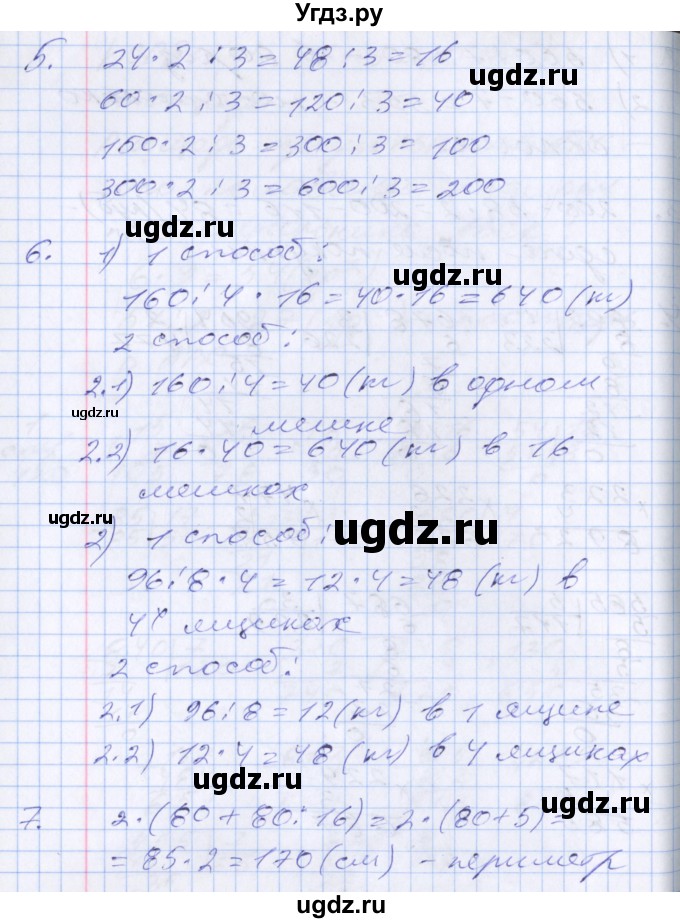 Угдз.ру
5. 24 · 2 : 3 = 48 : 3 = 16
60 · 2 : 3 = 120 : 3 = 40
150 · 2 : 3 = 300 : 3 = 100
300 · 2 : 3 = 600 : 3 = 200
ugdz.ru
ugdz.ru
6. 1) 1 способ:
160 : 4 · 16 = 40 · 16 = 640 (кг)
ugdz.ru
2 способ:
2.1) 160 : 4 = 40 (кг) в одном
мешке
ugdz.ru
2.2) 16 · 40 = 640 (кг) в 16
мешках
ugdz.ru
2) 1 способ:
ugdz.ru
96 : 8 · 4 = 12 · 4 = 48 (кг) в
4х ящиках
2 способ:
2.1) 96 : 8 = 12 (кг) в 1 ящике
2.2) 12 · 4 = 48 (кг) в 4 ящиках
ugdz.ru
7. 2 · (80 + 80 : 16) = 2 · (80 + 5) =
= 85 · 2 = 170 (см) - периметр
ugdz.ru